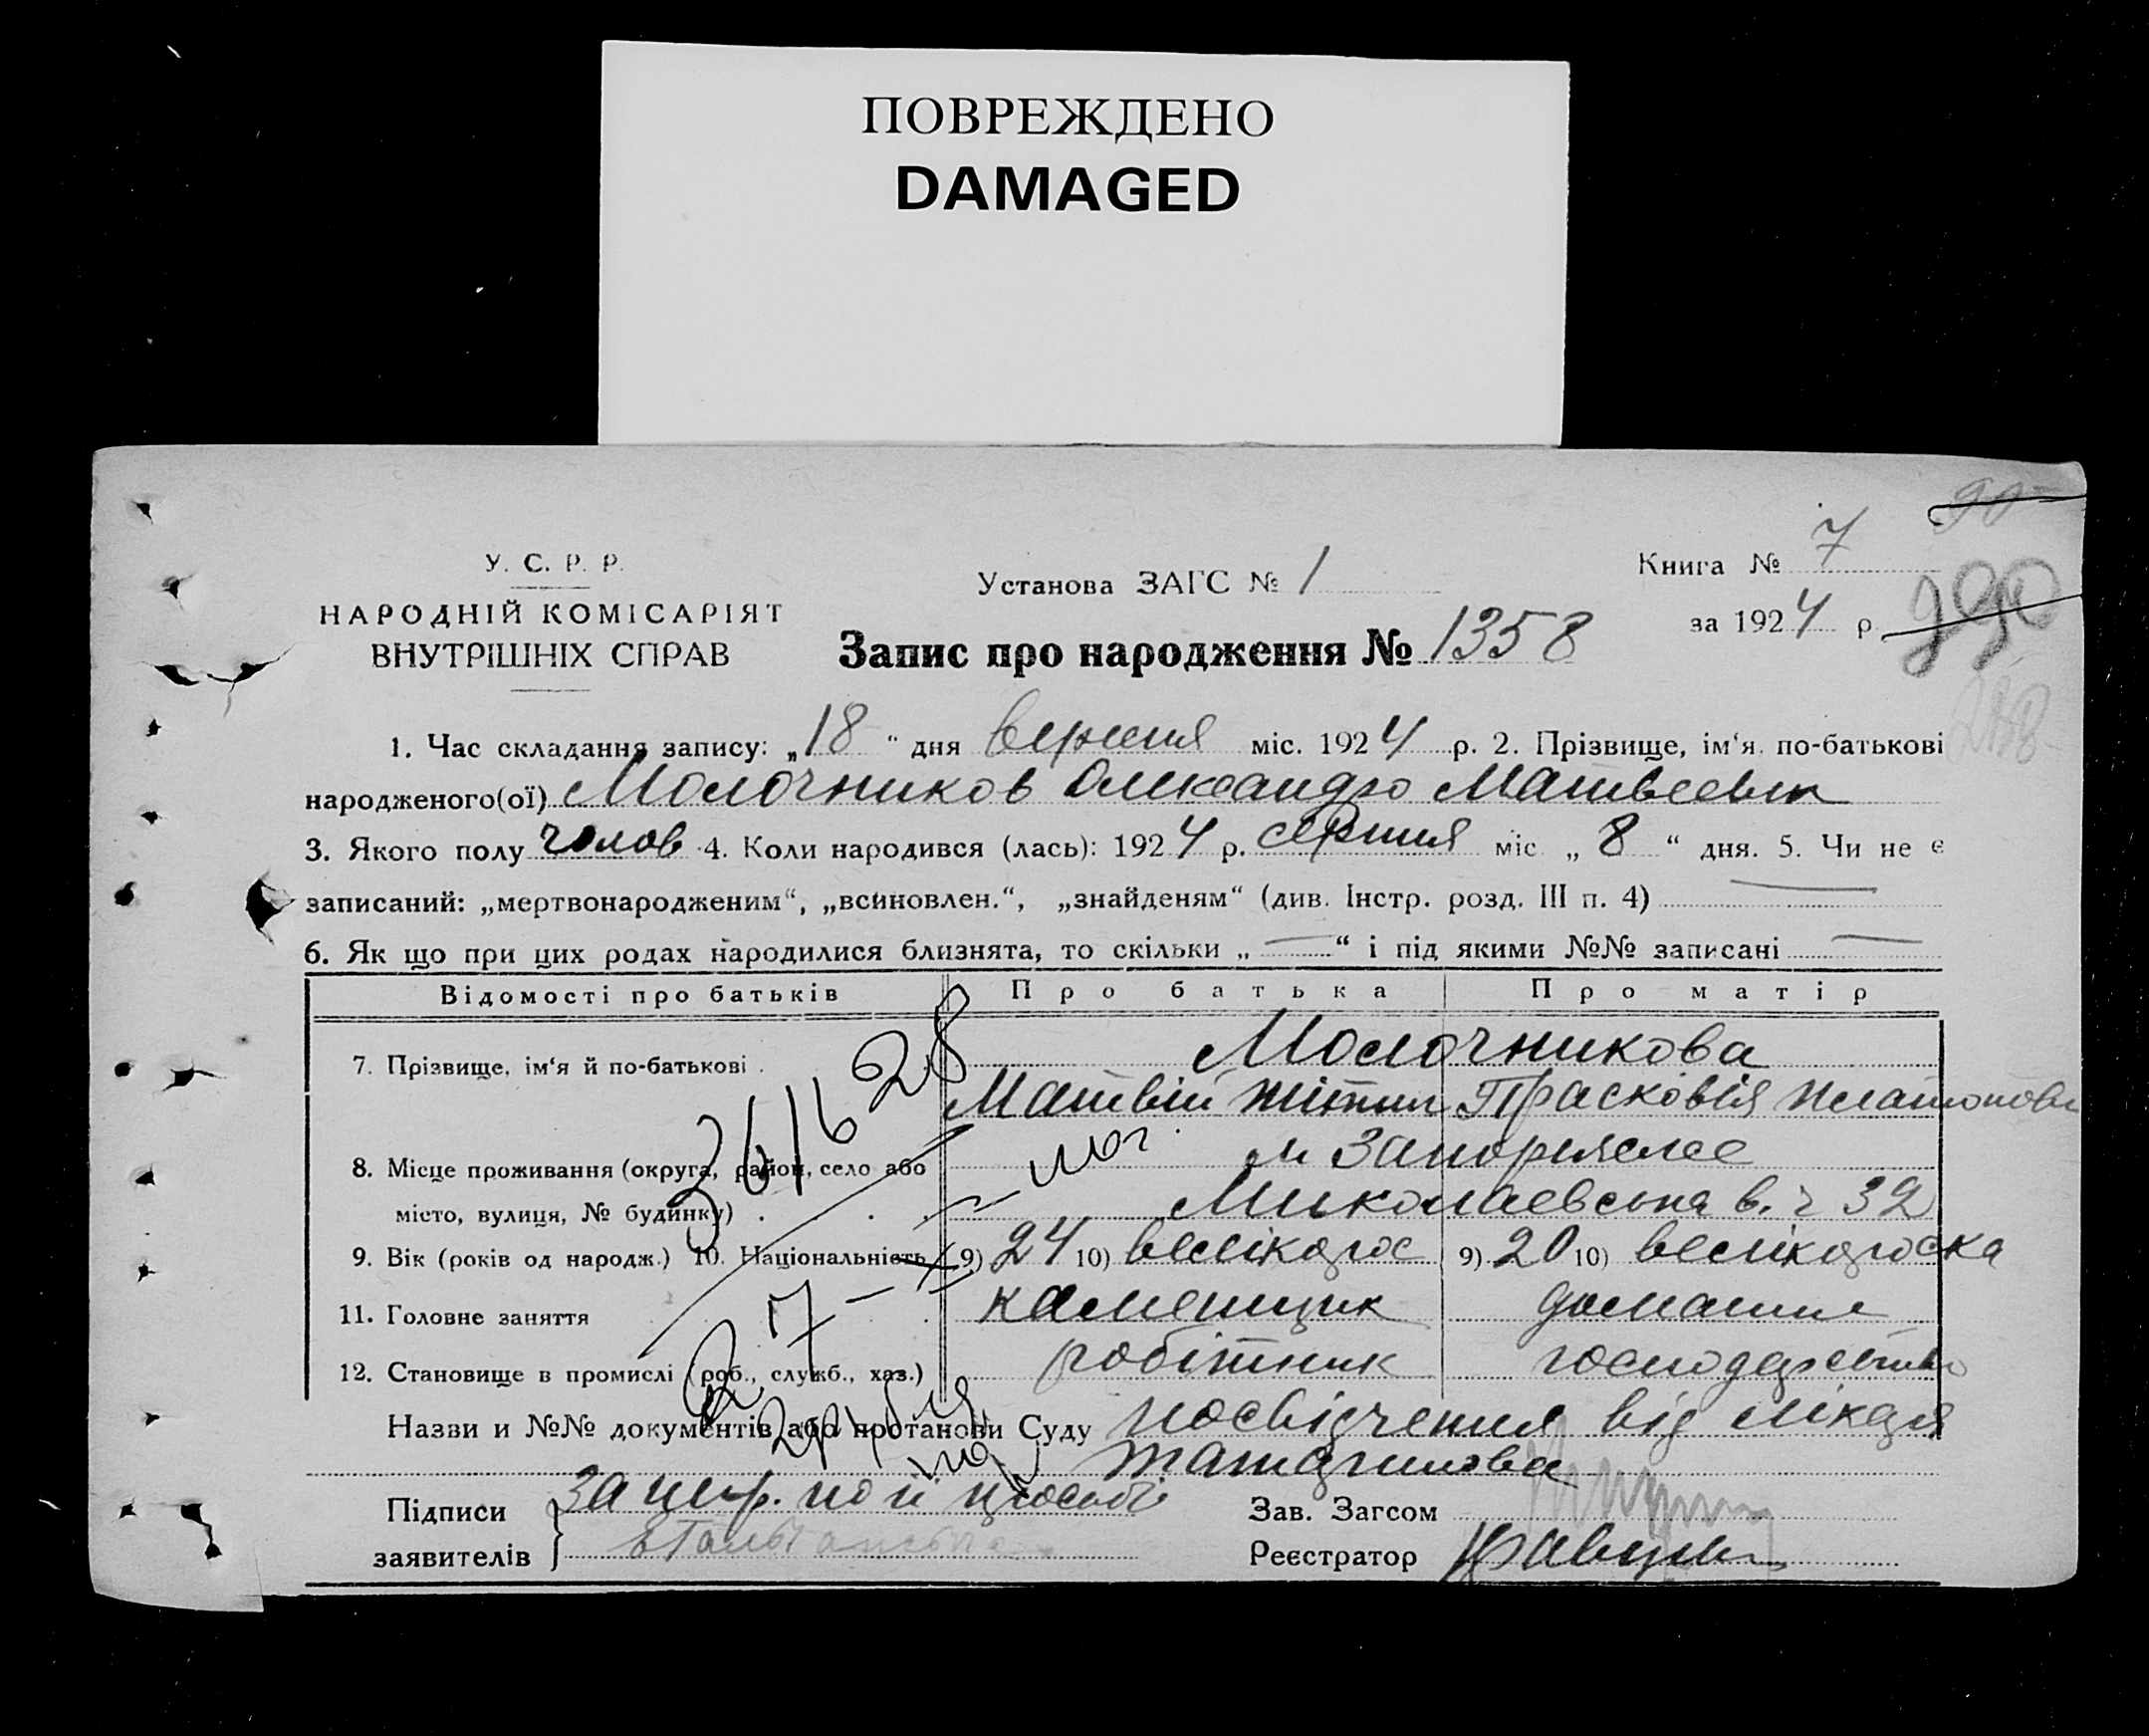 ПОВРЕЖДЕНО
DAMAGED
У. С. Р. Р.
НАРОДНІЙ КОМІСАРІЯТ
ВНУТРІШНІХ СПРАВ
Установа ЗАГС № 1
Книга № 7
за 1924 р.
Запис про народження № 1358
1. Час складання запису: „18“ дня вересня міс. 1924 р. 2. Прізвище, ім‘я, по-батькові
народженого(ої) Молочников Олександр Матвеевич
3. Якого полу чолов 4. Коли народився (лась): 1924 р. серпня міс „8“ дня. 5. Чи не є
записаний: „мертвонародженим“, „всиновлен.“, „знайденям“ (див. Інстр. розд. III п. 4) —
6. Як що при цих родах народилися близнята, то скільки „—“ і під якими №№ записані —
Відомості про батьків Про батька Про матір
7. Прізвище, ім‘я й по-батькові . Молочникова
Матвій Прасковія Платонов
8. Місце проживання (округа, район, село або м Запоріжжє
місто, вулиця, № будинку) . . Миколаевська в. ч 32
9. Вік (років од народж.) 10. Національність 9) 24 10) великорос 9) 20 10) великороска
11. Головне заняття каменщик домашнє
12. Становище в промислі (роб., служб., хаз.) робітник господарство
Назви и №№ документів або протанови Суду посвідчення від лікаря
Підписи За
заявителів
Зав. Загсом
Реєстратор Кравцов